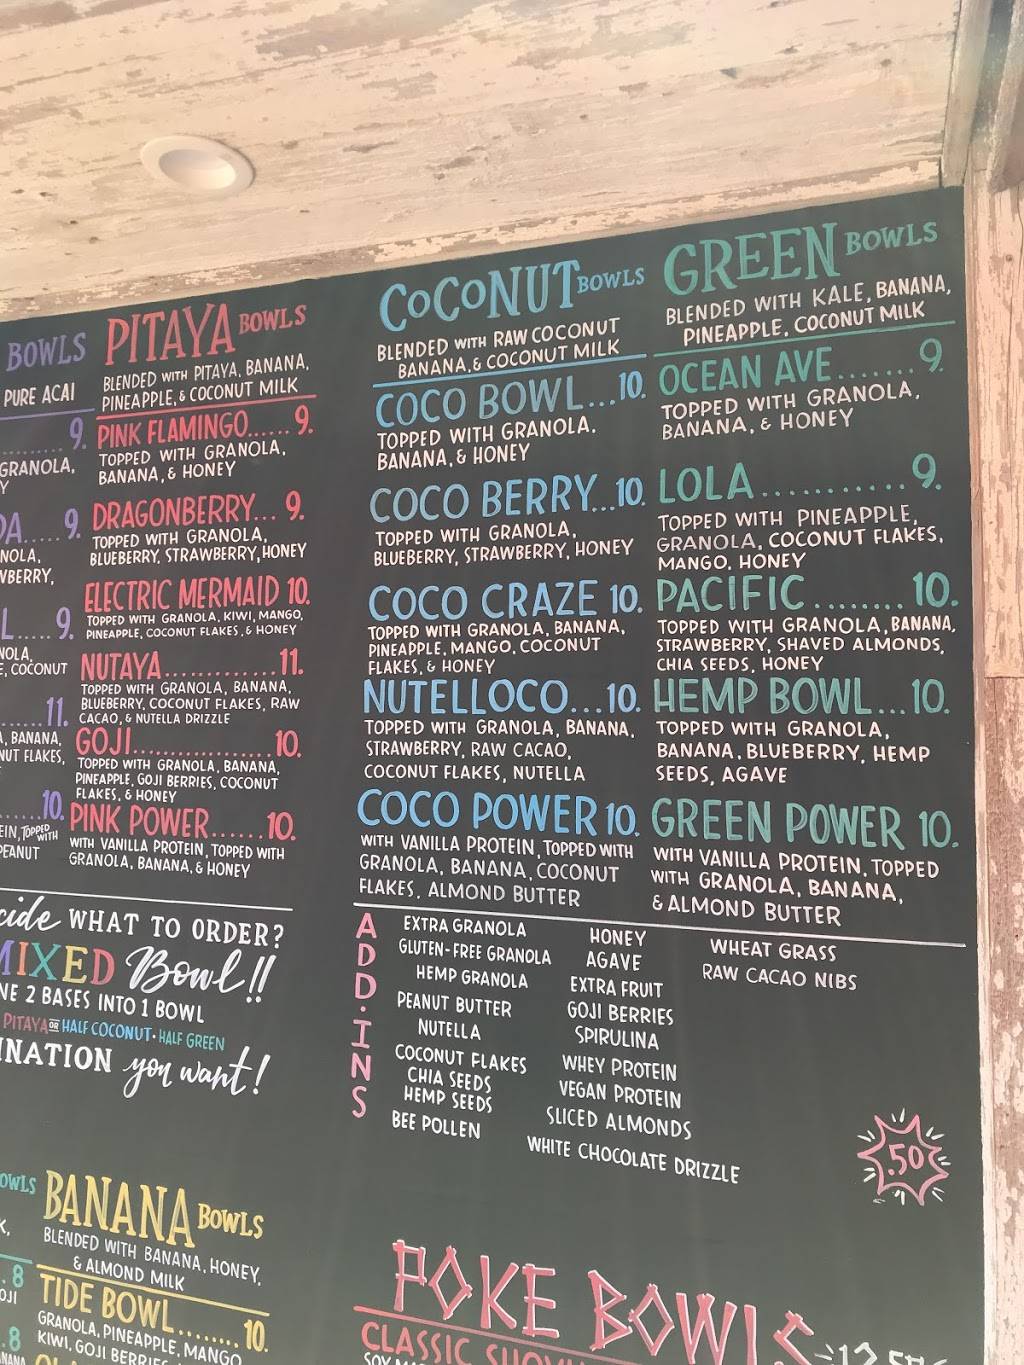 BOWLS
PURE ACAI
9.
GRANOLA,
9.
WBERRY,
9.
COCONUT
11.
BANANA,
FLAKES,
10.
TOPPED WITH
PITAYA BOWLS
BLENDED WITH PITAYA, BANANA,
PINEAPPLE, & COCONUT MILK
PINK FLAMINGO...... 9.
TOPPED WITH GRANOLA,
BANANA, & HONEY
DRAGONBERRY... 9.
TOPPED WITH GRANOLA,
BLUEBERRY, STRAWBERRY, HONEY
ELECTRIC MERMAID 10.
TOPPED WITH GRANOLA, KIWI, MANGO,
PINEAPPLE, COCONUT FLAKES, & HONEY
NUTAYA............. 11.
TOPPED WITH GRANOLA, BANANA,
BLUEBERRY, COCONUT FLAKES, RAW
CACAO, & NUTELLA DRIZZLE
GOJI................ 10.
TOPPED WITH GRANOLA, BANANA,
PINEAPPLE, GOJI BERRIES, COCONUT
FLAKES, & HONEY
PINK POWER...... 10.
WITH VANILLA PROTEIN, TOPPED WITH
GRANOLA, BANANA, & HONEY
COCONUT BOWLS
BLENDED WITH RAW COCONUT
BANANA, & COCONUT MILK
COCO BOWL... 10.
TOPPED WITH GRANOLA,
BANANA, & HONEY
COCO BERRY... 10.
TOPPED WITH GRANOLA,
BLUEBERRY, STRAWBERRY, HONEY
COCO CRAZE 10.
TOPPED WITH GRANOLA, BANANA,
PINEAPPLE, MANGO, COCONUT
FLAKES, & HONEY
NUTELLOCO... 10.
TOPPED WITH GRANOLA, BANANA,
STRAWBERRY, RAW CACAO,
COCONUT FLAKES, NUTELLA
COCO POWER 10.
WITH VANILLA PROTEIN, TOPPED WITH
GRANOLA, BANANA, COCONUT
FLAKES, ALMOND BUTTER
GREEN BOWLS
BLENDED WITH KALE, BANANA,
PINEAPPLE, COCONUT MILK
OCEAN AVE....... 9.
TOPPED WITH GRANOLA,
BANANA, & HONEY
LOLA........... 9.
TOPPED WITH PINEAPPLE,
GRANOLA, COCONUT FLAKES,
MANGO, HONEY
PACIFIC ........ 10.
TOPPED WITH GRANOLA, BANANA,
STRAWBERRY, SHAVED ALMONDS,
CHIA SEEDS, HONEY
HEMP BOWL... 10.
TOPPED WITH GRANOLA,
BANANA, BLUEBERRY, HEMP
SEEDS, AGAVE
GREEN POWER 10.
WITH VANILLA PROTEIN, TOPPED
WITH GRANOLA, BANANA,
& ALMOND BUTTER
WHAT TO ORDER?
MIXED Bowl!!
2 BASES INTO 1 BOWL
PITAYA OR HALF COCONUT • HALF GREEN
you want!
ADD-INS
EXTRA GRANOLA
GLUTEN-FREE GRANOLA
HEMP GRANOLA
PEANUT BUTTER
NUTELLA
COCONUT FLAKES
CHIA SEEDS
HEMP SEEDS
BEE POLLEN
HONEY
AGAVE
EXTRA FRUIT
GOJI BERRIES
SPIRULINA
WHEY PROTEIN
VEGAN PROTEIN
SLICED ALMONDS
WHITE CHOCOLATE DRIZZLE
WHEAT GRASS
RAW CACAO NIBS
.50
BOWLS
.8
.8
BANANA BOWLS
BLENDED WITH BANANA, HONEY,
& ALMOND MILK
TIDE BOWL........ 10.
GRANOLA, PINEAPPLE, MANGO
KIWI, GOJI BERRIES
POKE BOWLS
CLASSIC